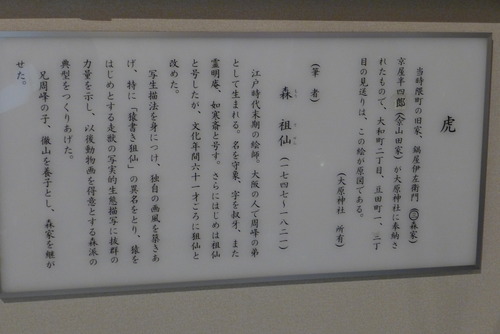 虎
当時隈町の旧家、鍋屋伊左衛門(㊂森家)
京屋半四郎(仝山田家)が大原神社に奉納さ
れたもので、大和町二丁目、豆田町一、三丁
目の見送りは、この絵が原図である。
(大原神社 所有)
(筆 者)
森 祖仙(一七四七〜一八二一)
もり そせん
江戸時代末期の絵師。大阪の人で周峰の弟
として生まれる。名を守象、字を叔牙、また
霊明庵、如寒斎と号す。さらにはじめは祖仙
と号したが、文化年間六十一才ごろに狙仙と
改めた。
写生描法を身につけ、独自の画風を築きあ
げ、特に「猿書き狙仙」の異名をとり、猿を
はじめとする走獣の写実的生態描写に抜群の
力量を示し、以後動物画を得意とする森派の
典型をつくりあげた。
兄周峰の子、徹山を養子とし、森家を継が
せた。